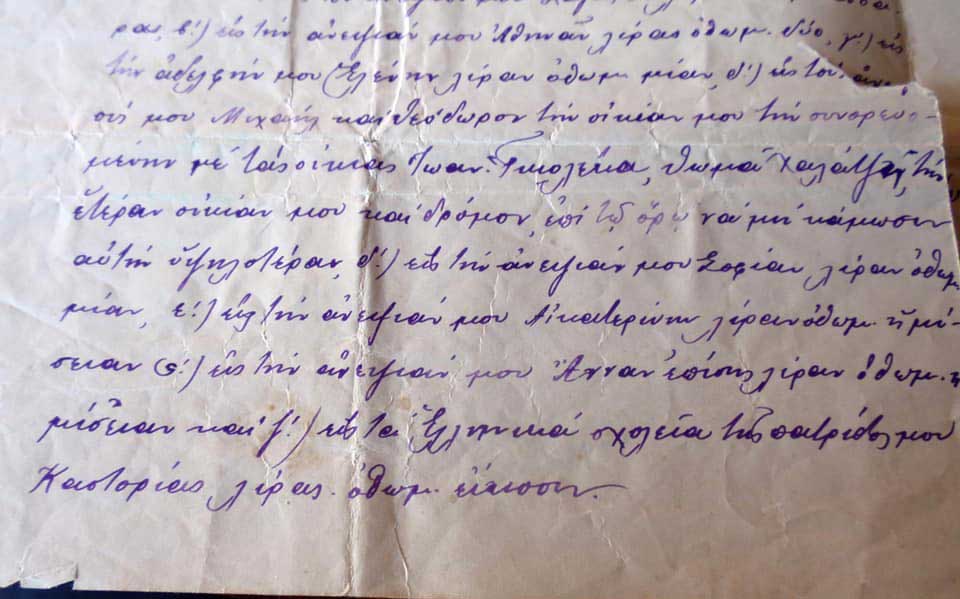 ρας, β΄.) εἰς τὴν ἀνεψιάν μου Ἀθηνᾶν λίρας ὀθωμ. δύο, γ΄.) εἰς
τὴν ἀδελφήν μου Ἑλένην λίραν ὀθωμ. μίαν, δ΄.) εἰς τοὺς
μου Μιχαὴλ καὶ Θεόδωρον τὴν οἰκίαν μου τὴν συνορευο-
μένην μὲ τὰς οἰκίας Ἰωάν. Θωμᾶ Χαλάτζη, τὴν
ἑτέραν οἰκίαν μου καὶ δρόμον, ἐπὶ τῷ ὅρῳ νὰ μὴ κάμωσιν
αὐτὴν ὑψηλοτέραν, δ΄.) εἰς τὴν ἀνεψιάν μου Σοφίαν λίραν ὀθωμ.
μίαν, ε΄.) εἰς τὴν ἀνεψιάν μου Αἰκατερίνην λίραν ὀθωμ. ἡμί-
σειαν ϛ΄.) εἰς τὴν ἀνεψιάν μου Ἄνναν ἐπίσης λίραν ὀθωμ. ἡ
μίσειαν καὶ ζ΄.) εἰς τὰ Ἑλληνικά σχολεῖα τῆς πατρίδος μου
Καστορίας λίρας ὀθωμ. εἴκοσιν.